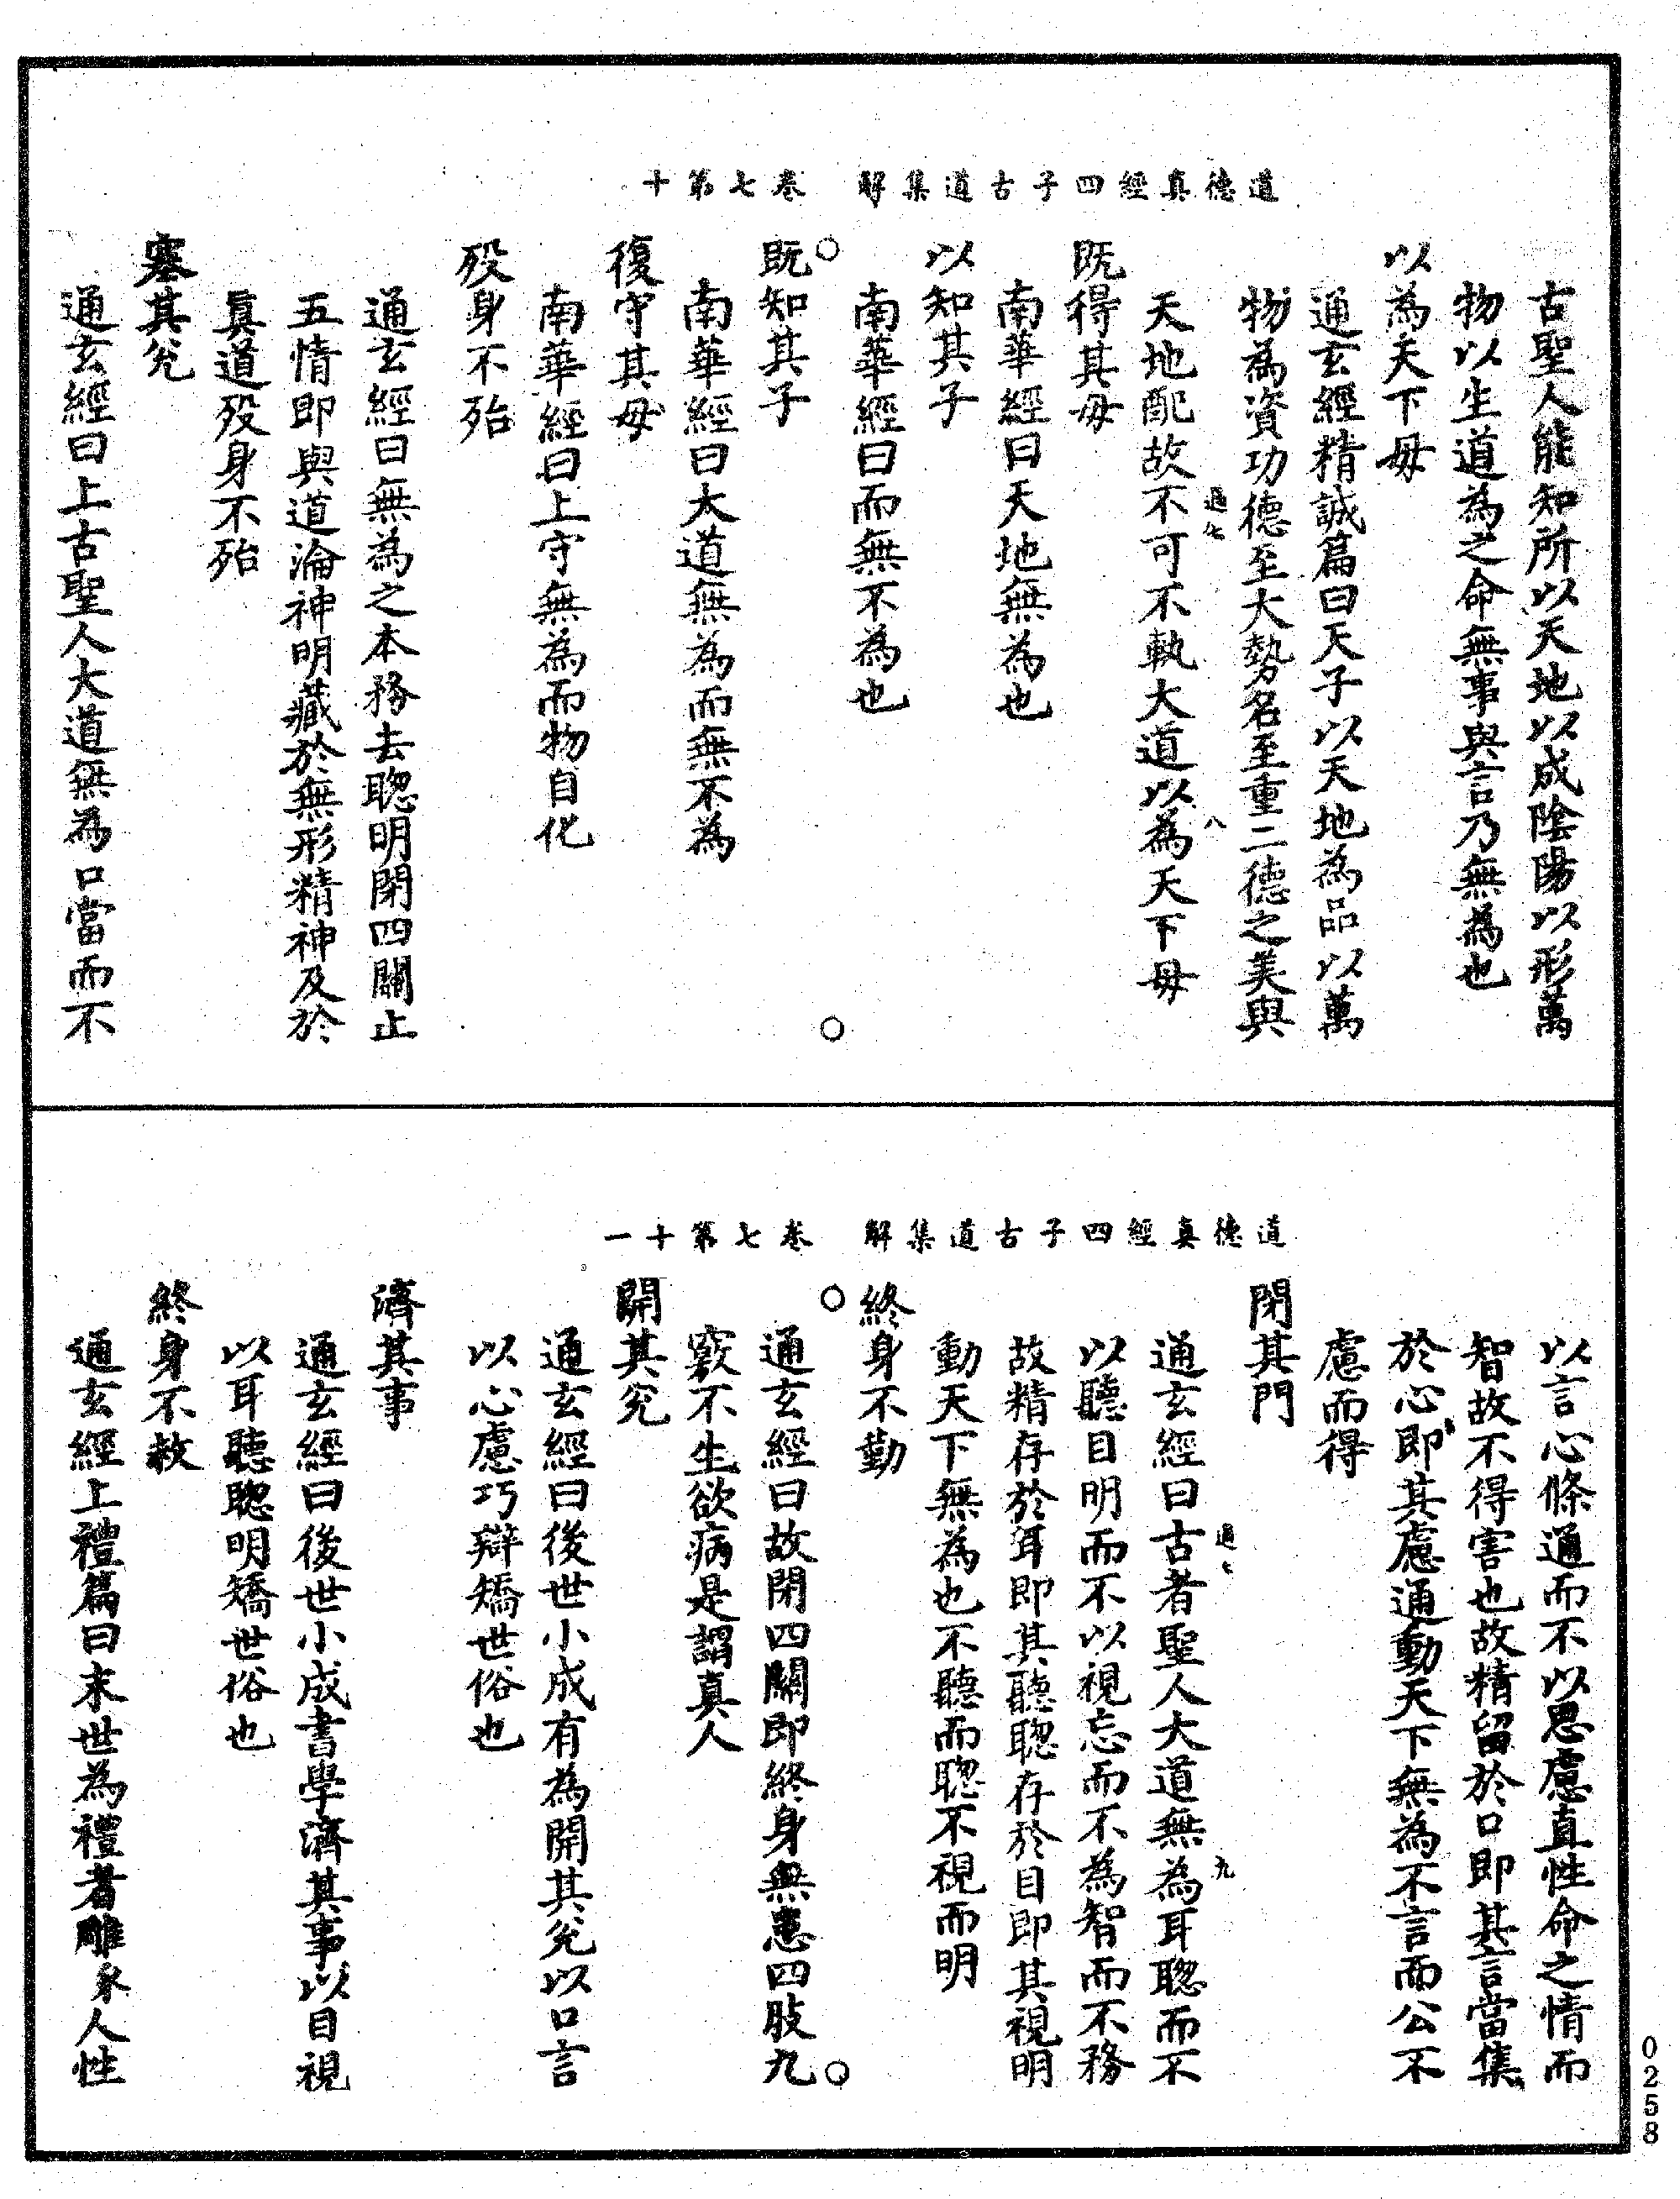 道德真經四子古道集解　卷七第十
古聖人能知所以天地以成陰陽以形萬
物以生道為之命無事與言乃無為也
以為天下母
通玄經精誠篇曰天子以天地為品以萬
物為資功德至大勢名至重二德之美與
過七　八
天地配故不可不執大道以為天下母
既得其母
南華經曰天地無為也
以知其子
南華經曰而無不為也
既知其子
南華經曰大道無為而無不為
復守其母
南華經曰上守無為而物自化
歿身不殆
通玄經曰無為之本務去聰明閉四關止
五情即與道淪神明藏於無形精神及於
真道歿身不殆
塞其兌
通玄經曰上古聖人大道無為口當而不
道德真經四子古道集解　卷七第十一
以言心條通而不以思慮直性命之情而
智故不得害也故精留於口即其言當集
於心即其慮通動天下無為不言而公不
慮而得
閉其門
過七　九
通玄經曰古者聖人大道無為耳聰而不
以聽目明而不以視忘而不為智而不務
故精存於耳即其聽聰存於目即其視明
動天下無為也不聽而聰不視而明
終身不勤
通玄經曰故閉四關即終身無患四肢九
竅不生欲病是謂真人
開其兌
通玄經曰後世小成有為開其兌以口言
以心慮巧辯矯世俗也
濟其事
通玄經曰後世小成書學濟其事以目視
以耳聽聰明矯世俗也
終身不救
通玄經上禮篇曰末世為禮者雕人性
0258